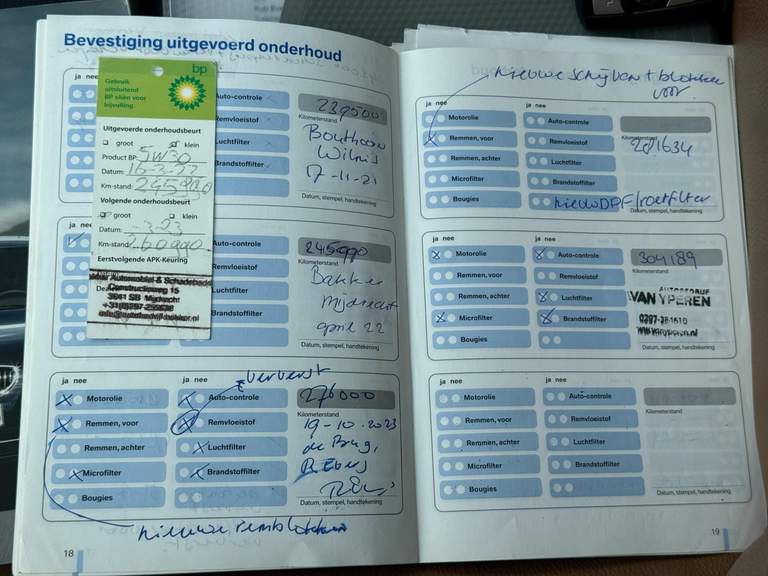 Bevestiging uitgevoerd onderhoud
bp
Gebruik
uitsluitend
BP oliën voor
bijvulling.
Uitgevoerde onderhoudsbeurt
groot klein
Product BP: 5W30
Datum: 16-3-22
Km-stand: 245990
Volgende onderhoudsbeurt
groot klein
Datum: -3-23
Km-stand: 260990
Eerstvolgende APK-Keuring
Automobiel & Schadebedr
Constructieweg 15
3641 SB Mijdrecht
ja nee
Auto-controle
Remvloeistof
Luchtfilter
Brandstoffilter
239500
Kilometerstand
Bouthoorn
Wilnis
17-11-21
Datum, stempel, handtekening
Auto-controle
Remvloeistof
Luchtfilter
Brandstoffilter
245990
Kilometerstand
Bakker
Mijdrecht
april 22
Datum, stempel, handtekening
ververst
ja nee ja nee
Motorolie Auto-controle
Remmen, voor Remvloeistof
Remmen, achter Luchtfilter
Microfilter Brandstoffilter
Bougies
276000
Kilometerstand
19-10-2023
de Brug,
Datum, stempel, handtekening
nieuwe remblokken
18
nieuwe schijven + blokken
voor
ja nee ja nee
Motorolie Auto-controle
Remmen, voor Remvloeistof
Remmen, achter Luchtfilter
Microfilter Brandstoffilter
Bougies
Kilometerstand
281634
nieuw DPF/roetfilter
Datum, stempel, handtekening
ja nee ja nee
Motorolie Auto-controle
Remmen, voor Remvloeistof
Remmen, achter Luchtfilter
Microfilter Brandstoffilter
Bougies
304189
Kilometerstand
AUTOBEDRIJF
VAN YPEREN
0297-281610
Datum, stempel, handtekening
ja nee ja nee
Motorolie Auto-controle
Remmen, voor Remvloeistof
Remmen, achter Luchtfilter
Microfilter Brandstoffilter
Bougies
Kilometerstand
Datum, stempel, handtekening
19